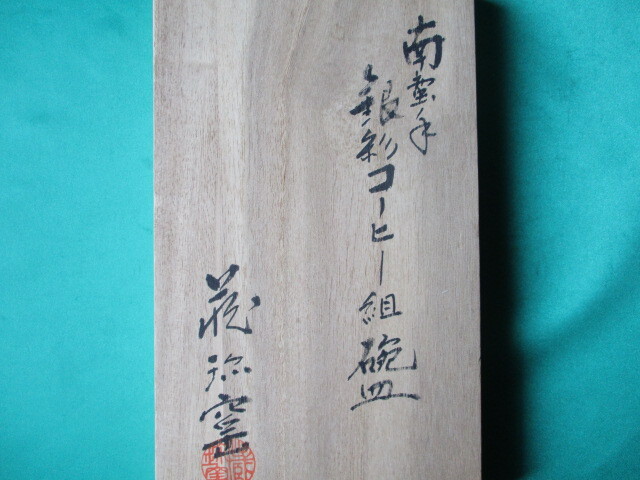 南蛮手
銀彩コーヒー組碗皿
蔵珍窯